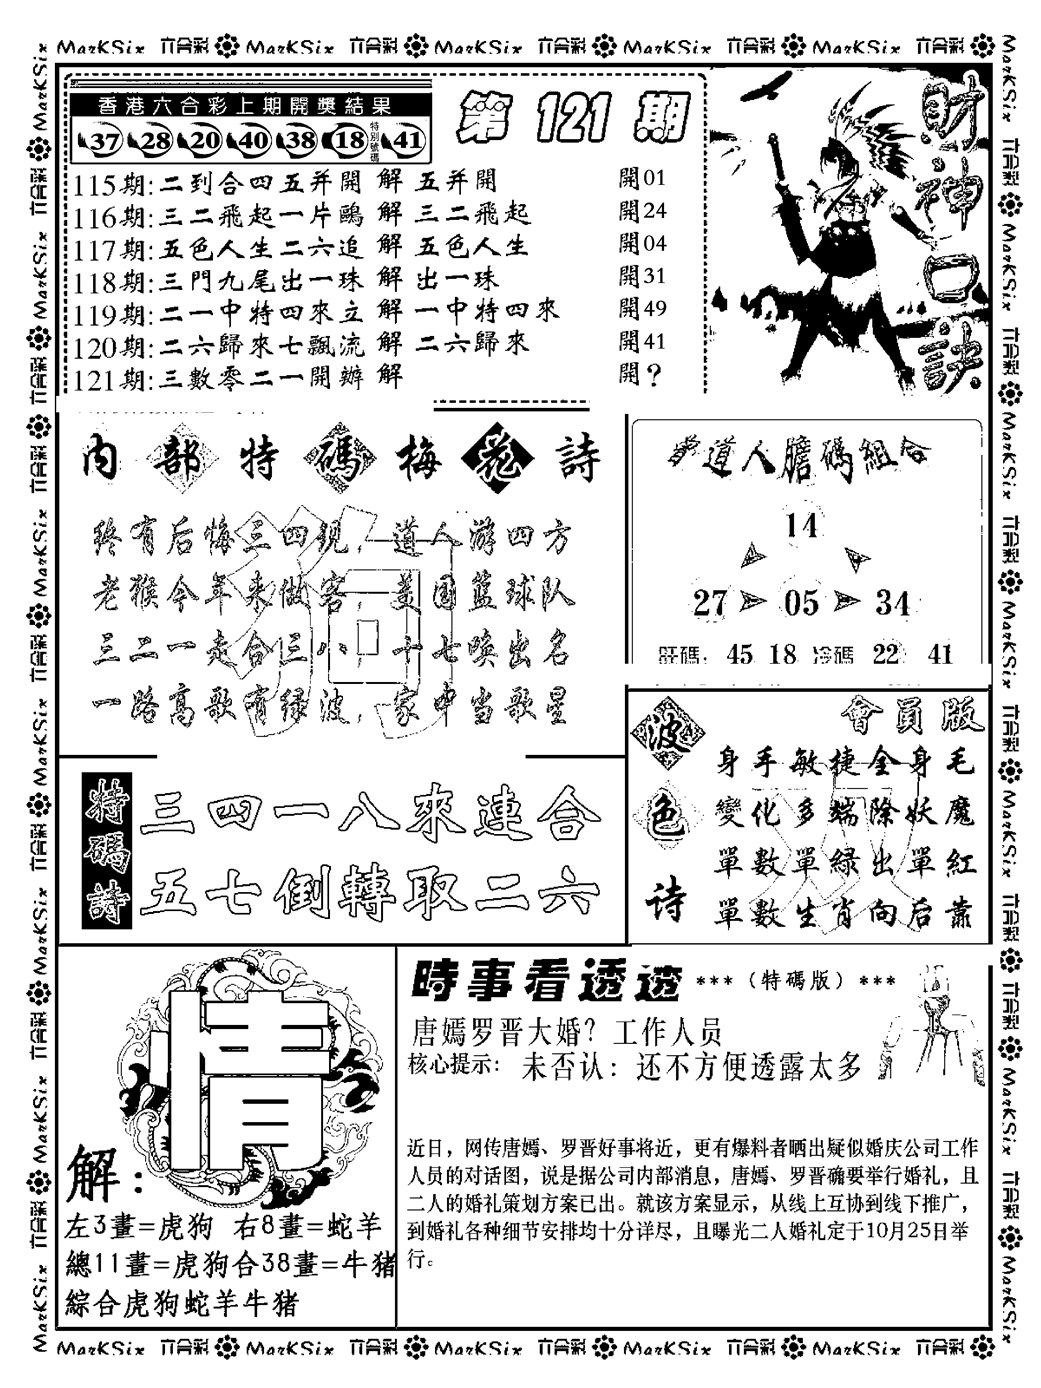 MarKSix 六合彩 MarKSix 六合彩 MarKSix 六合彩 MarKSix 六合彩 MarKSix 六合彩
香港六合彩上期開獎結果
37 28 20 40 38 18 特別號碼 41
第 121 期
財神口訣
115期:二到合四五并開 解 五并開 開01
116期:三二飛起一片鷗 解 三二飛起 開24
117期:五色人生二六追 解 五色人生 開04
118期:三門九尾出一珠 解 出一珠 開31
119期:二一中特四來立 解 一中特四來 開49
120期:二六歸來七飄流 解 二六歸來 開41
121期:三數零二一開辦 解 開?
内部特碼梅花詩
终有后悔三四现，道人游四方
老猴今年来做客，美国篮球队
三二一走合三八，十七唤出名
一路高歌有绿波，家中当歌星
曾道人膽碼組合
14
27 05 34
旺碼: 45 18 冷碼 22 41
特碼詩
三四一八來連合
五七倒轉取二六
波色诗
會員版
身手敏捷全身毛
變化多端除妖魔
單數單緑出單紅
單數生肖向后靠
情
解:
左3畫=虎狗 右8畫=蛇羊
總11畫=虎狗合38畫=牛猪
綜合虎狗蛇羊牛猪
時事看透透 ***（特碼版）***
唐嫣罗晋大婚？工作人员
核心提示: 未否认: 还不方便透露太多
近日，网传唐嫣、罗晋好事将近，更有爆料者晒出疑似婚庆公司工作
人员的对话图，说是据公司内部消息，唐嫣、罗晋确要举行婚礼，且
二人的婚礼策划方案已出。就该方案显示，从线上互协到线下推广，
到婚礼各种细节安排均十分详尽，且曝光二人婚礼定于10月25日举
行。
MarKSix 六合彩 MarKSix 六合彩 MarKSix 六合彩 MarKSix 六合彩 MarKSix 六合彩